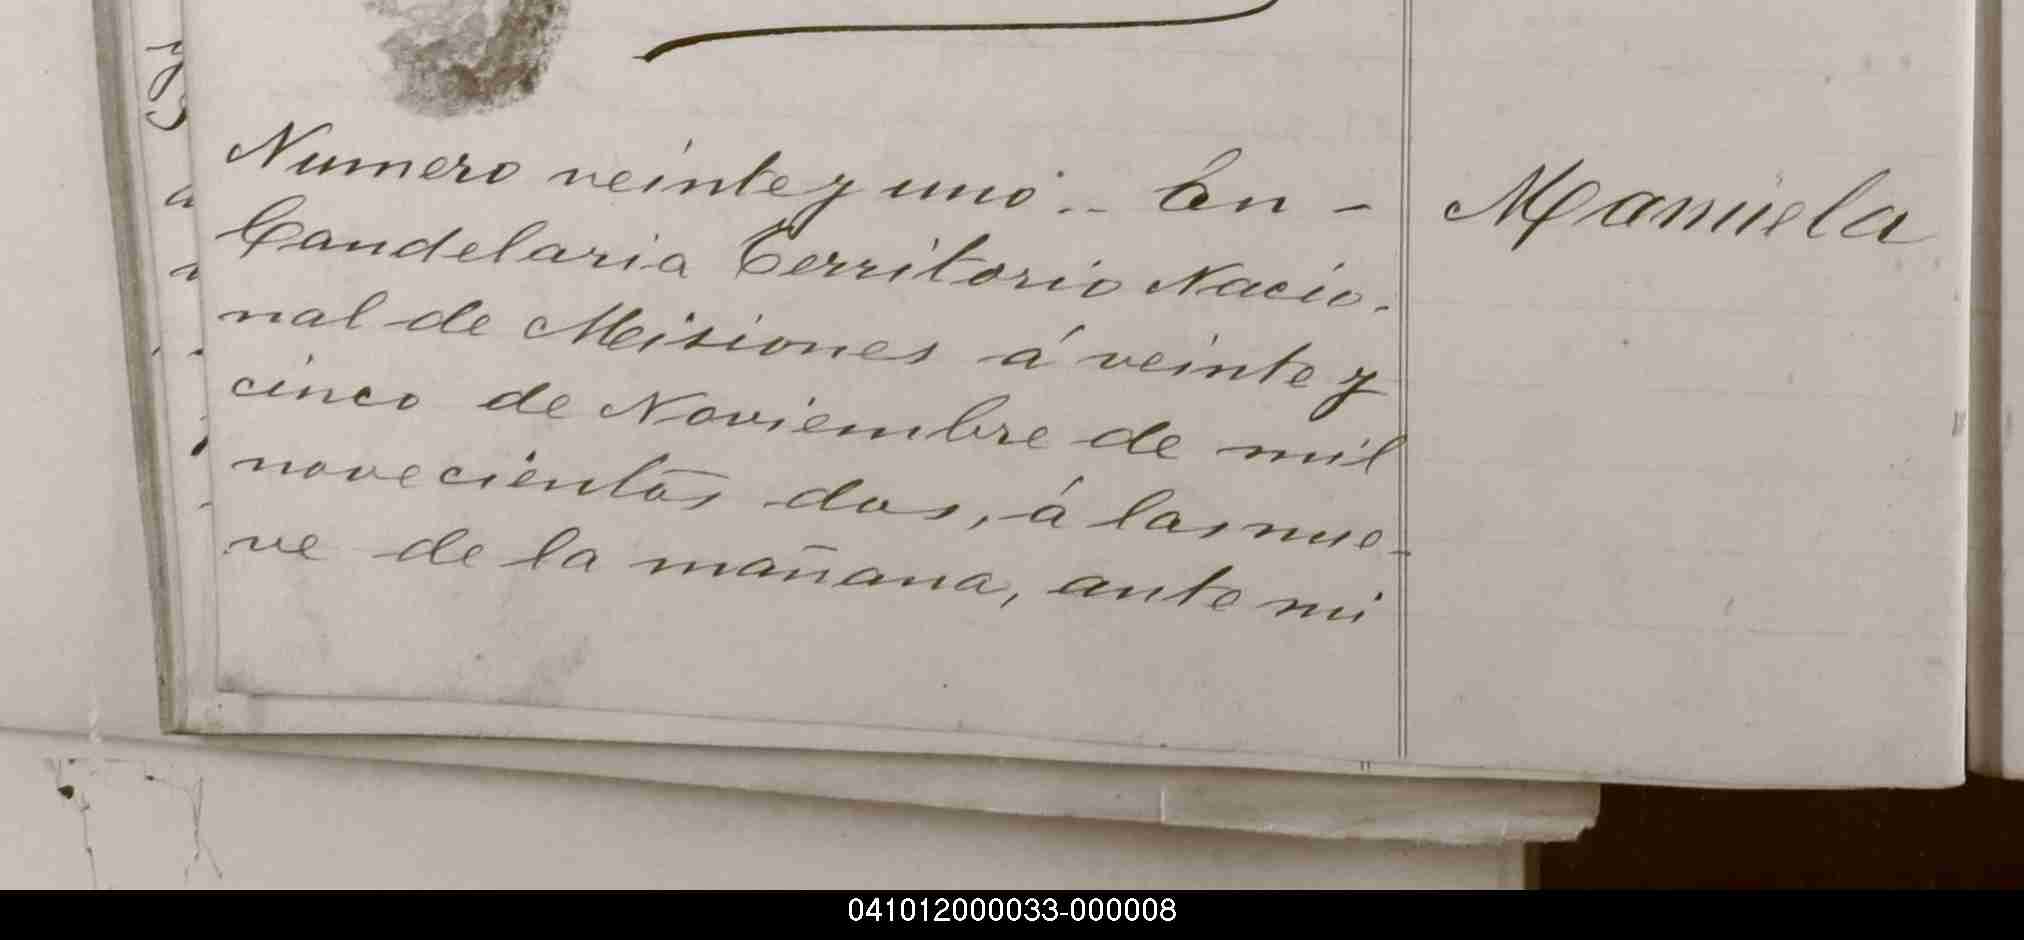 Numero veinte y uno.. En -
Manuela
Candelaria Territorio Nacio-
nal de Misiones á veinte y
cinco de Noviembre de mil
novecientos dos, á las nue-
ve de la mañana, ante mi
041012000033-000008